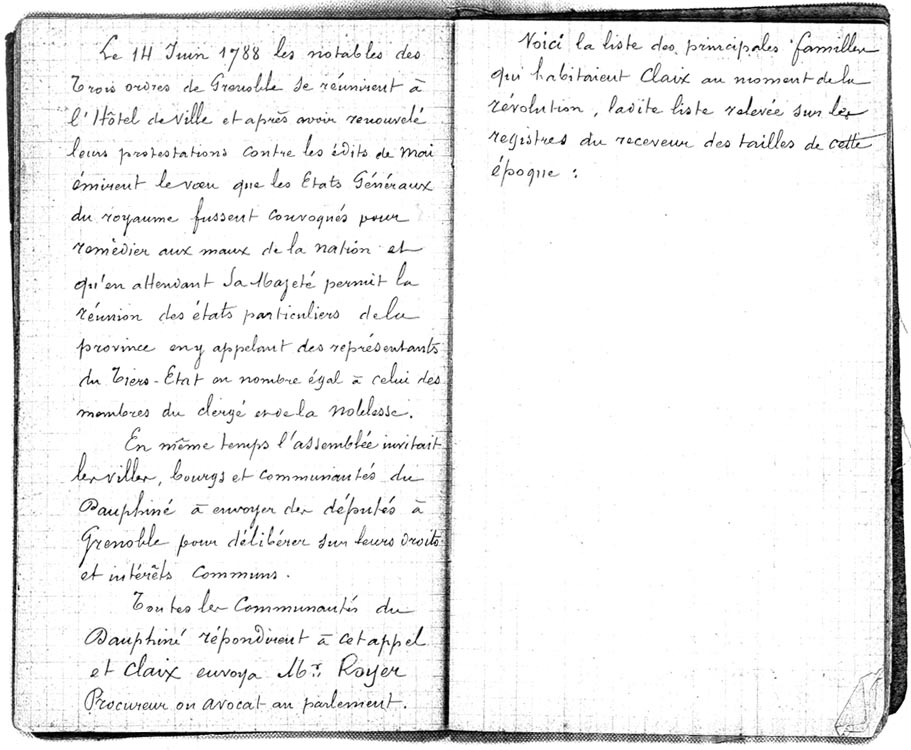 Le 14 Juin 1788 les notables des
Trois ordres de Grenoble se réunirent à
l'Hôtel de Ville et après avoir renouvelé
leurs protestations contre les édits de Mai
émirent le vœu que les Etats Généraux
du royaume fussent convoqués pour
remèdier aux maux de la nation et
qu'en attendant Sa Majeté permit la
réunion des états particuliers de la
province en y appelant des représentants
du Tiers-Etat en nombre égal à celui des
membres du clergé et de la Noblesse.
En même temps l'assemblée invitait
les villes, bourgs et communautés du
Dauphiné à envoyer des députés à
Grenoble pour délibérer sur leurs droits
et intérêts communs.
Toutes les Communautés du
Dauphiné répondirent à cet appel
et Claix envoya Mr. Royer
Procureur ou avocat au parlement.
Voici la liste des principales familles
qui habitaient Claix au moment de la
révolution, ladite liste relevée sur les
registres du receveur des tailles de cette
époque :